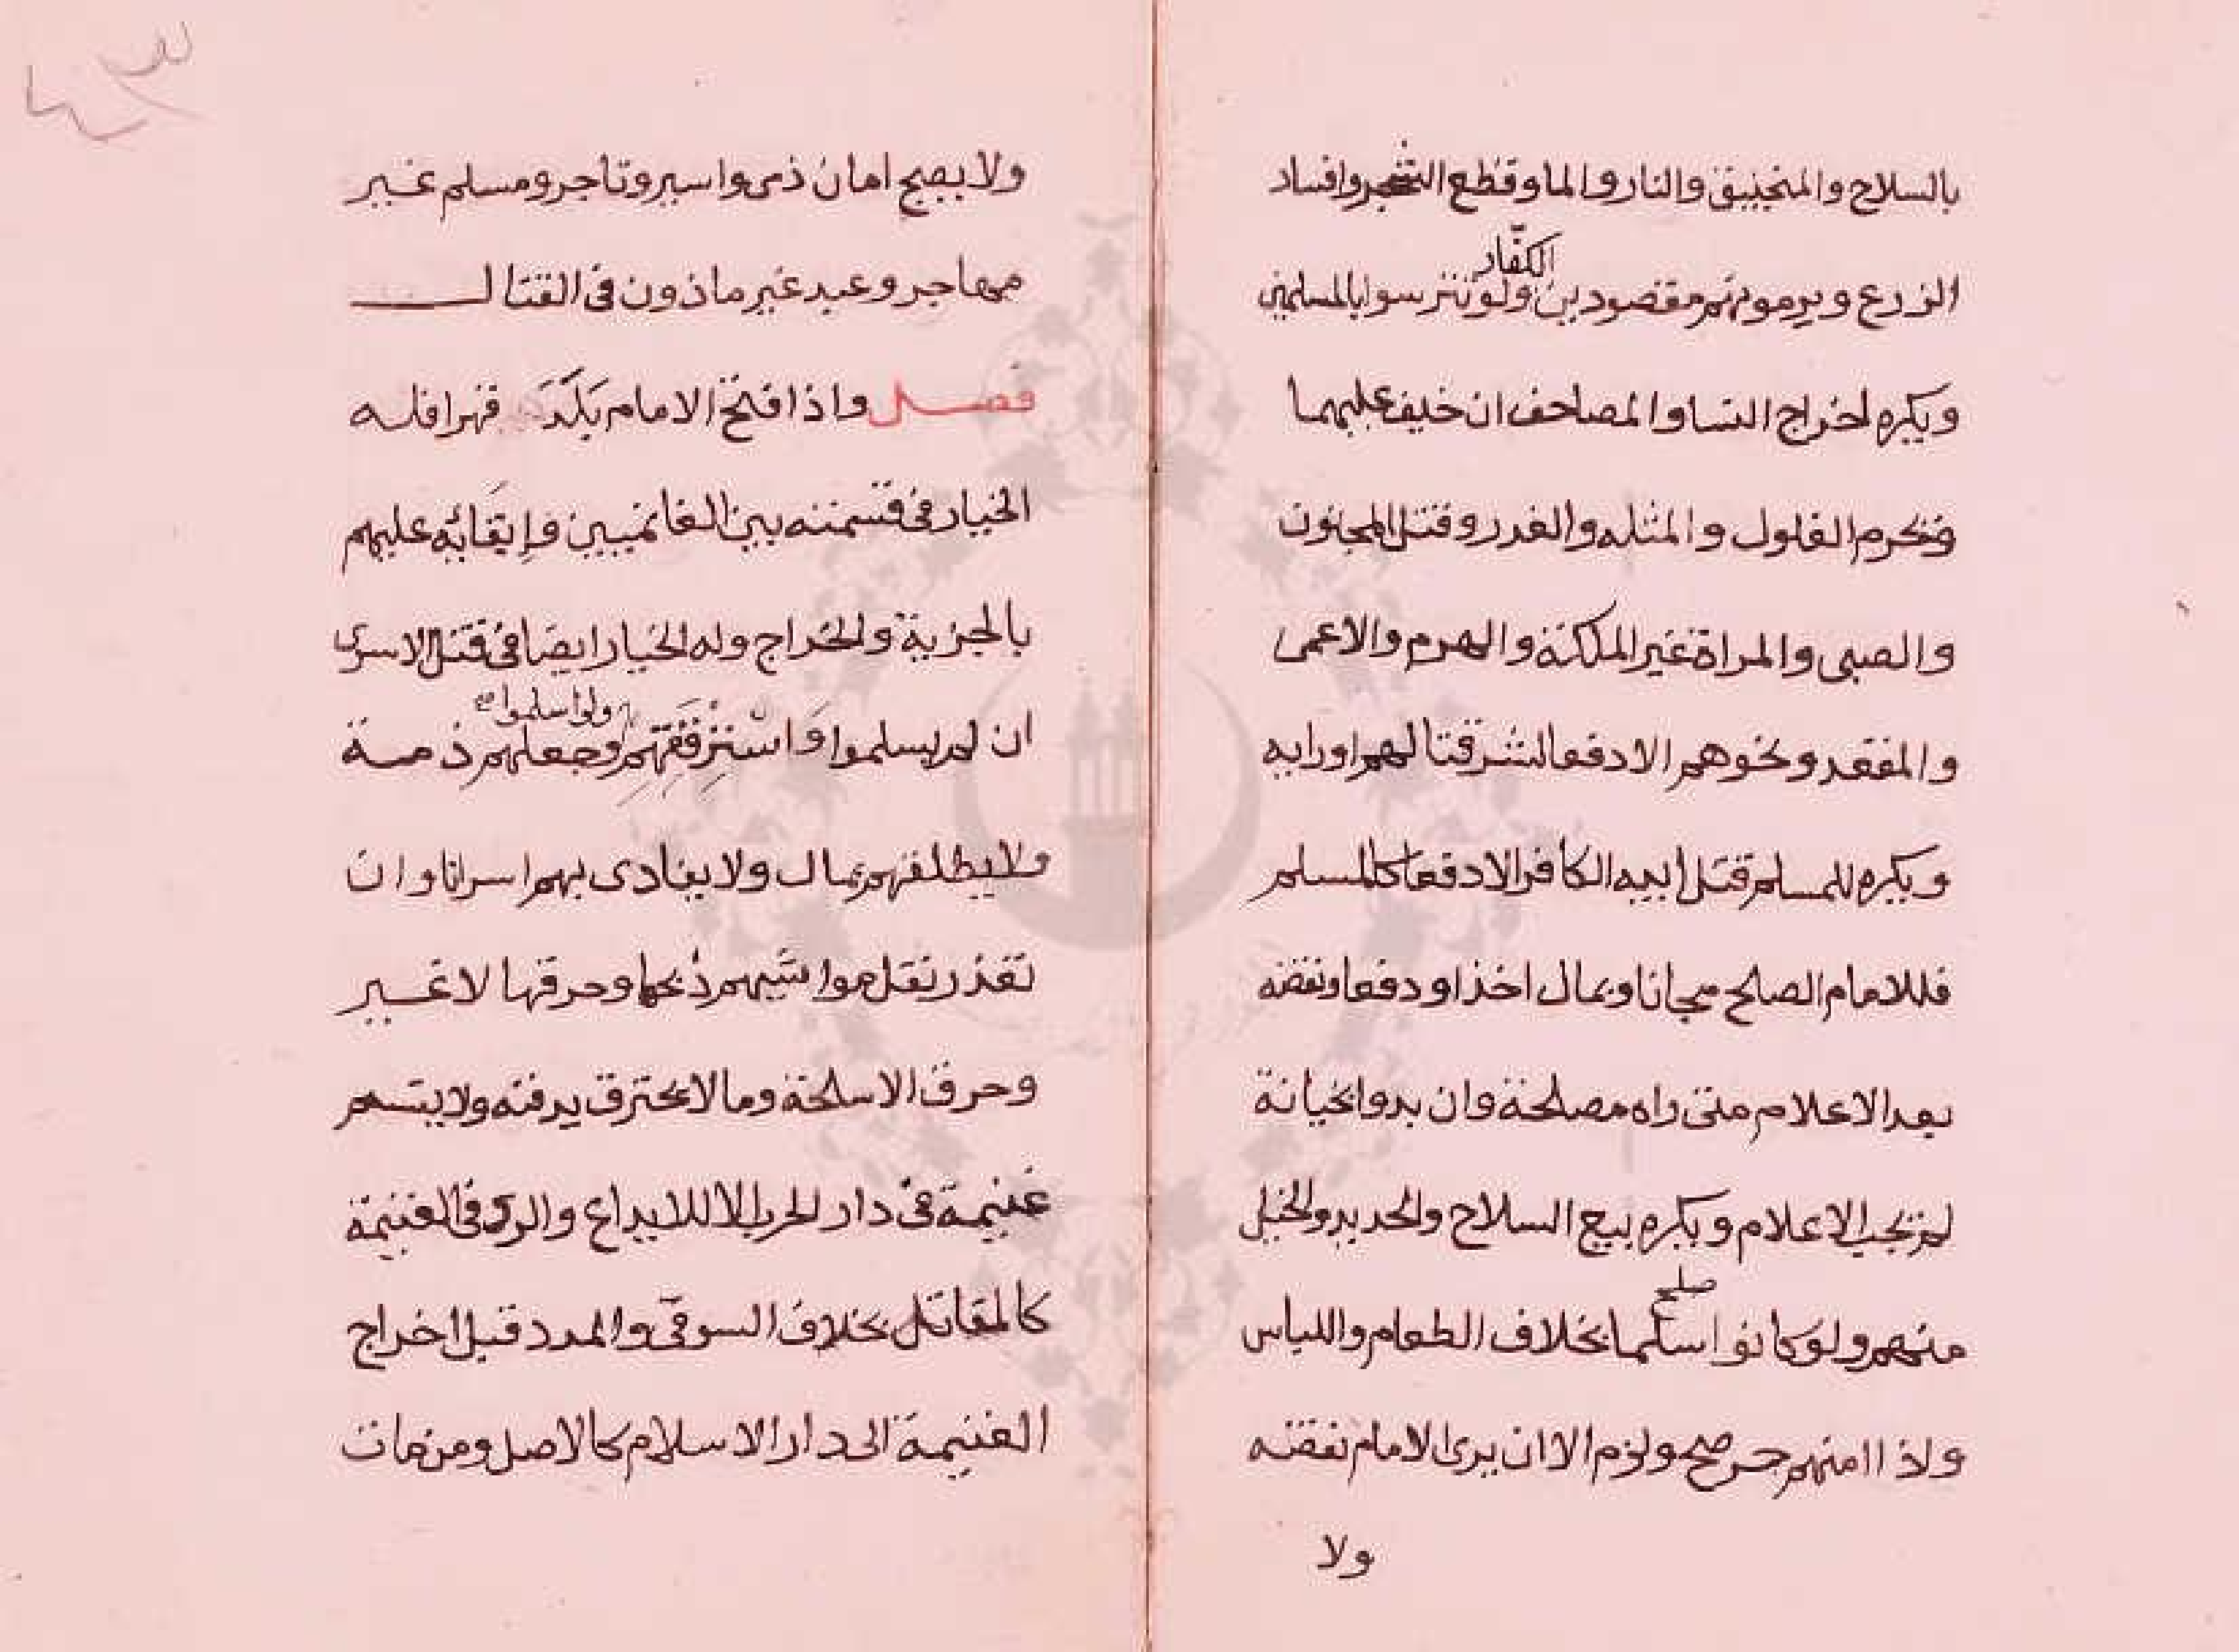 بالسلاح والمنجنيق والنار والما وقطع الشجر وافساد
الزرع ويرمونهم مقصودين ولو تترسوا بالمسلمين
الكفّار
ويكره اخراج النسا والمصاحف ان خيف عليهما
ويحرم الغلول والمثله والغدر وقتل المجنون
والصبى والمراة غير الملكة والهرم والاعمى
والمقعد ونحوهم الا دفعا لشر قتالهم او رايه
ويكره للمسلم قتل ابيه الكافر الا دفعا كالمسلم
فللامام الصلح مجانا وبمال اخذا ودفعا ونقضه
بعد الاعلام متى راه مصلحة وان بدوا بخيانة
لم يجب الاعلام ويكره بيع السلاح والحديد والخيل
منهم ولو كانوا اسلما بخلاف الطعام واللباس
صلح
واذا امنهم حر صح ولزم الا ان يرى الامام نقضه
ولا
ولا يصح امان ذمى واسير وتاجر ومسلم غير
مهاجر وعبد غير ماذون فى القتال
فصل واذا افتح الامام بَلَدَ قهرا فله
الخيار فى قسمته بين الغانميين وإبقَائِه عليهم
بالجزية والخراج وله الخيار ايضا فى قتل الاسرى
ان لم يسلموا وَاسْتِرْقَقِهِمْ وجعلهم ذمة
ولو اسلموا
ولا يطلقهم بمال ولا يفادى بهم اسرانا وان
تعذر نقل مواشيهم ذبحها وحرقها لا غير
وحرق الاسلحة وما لا يحترق يدفنه ولا يقسم
غنيمة فى دار الحرب الا للايداع والردء فى الغنيمة
كالمقاتل بخلاف السوقى والمدد قبل اخراج
الغنيمة الى دار الاسلام كالاصل ومن مات